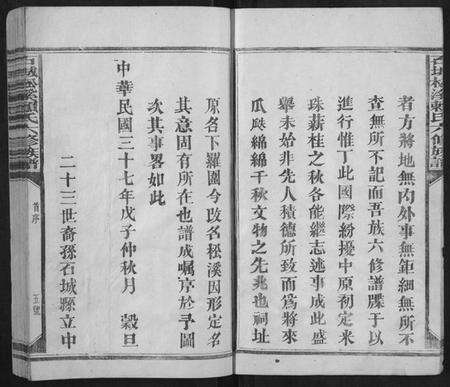 石城松溪賴氏六修族譜
者方將地無內外事無鉅細無所不
查無所不記而吾族六修譜牒于以
進行惟丁此國際紛擾中原初定米
珠薪桂之秋各能繼志述事成此盛
舉未始非先人積德所致而為將來
瓜瓞綿綿千秋文物之先兆也祠址
原名下羅園今改名松溪因形定名
其意固有所在也譜成囑序於予圖
次其事畧如此
中華民國三十七年戊子仲秋月 穀旦
二十三世裔孫石城縣立中
石城松溪賴氏六修族譜
首序
五號